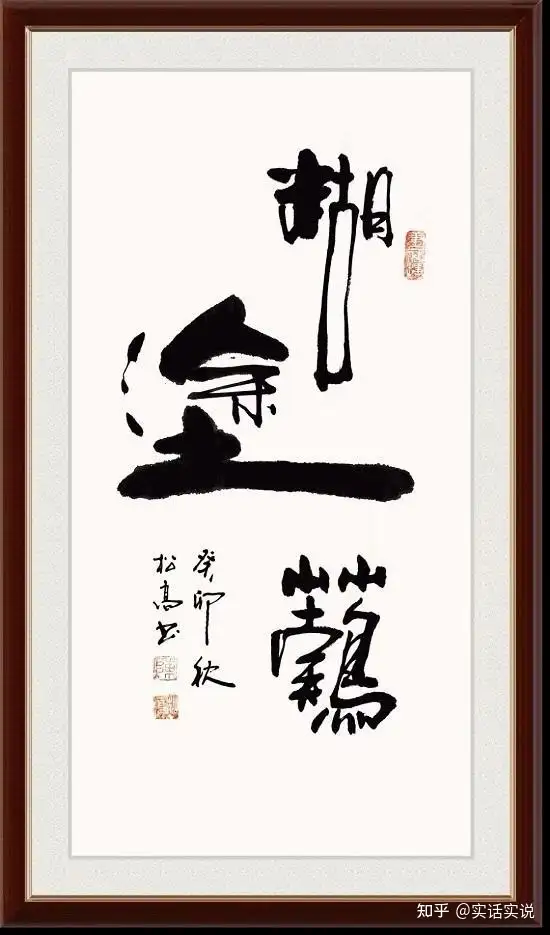 糊
塗
癸卯秋
松高书
知乎 @实话实说